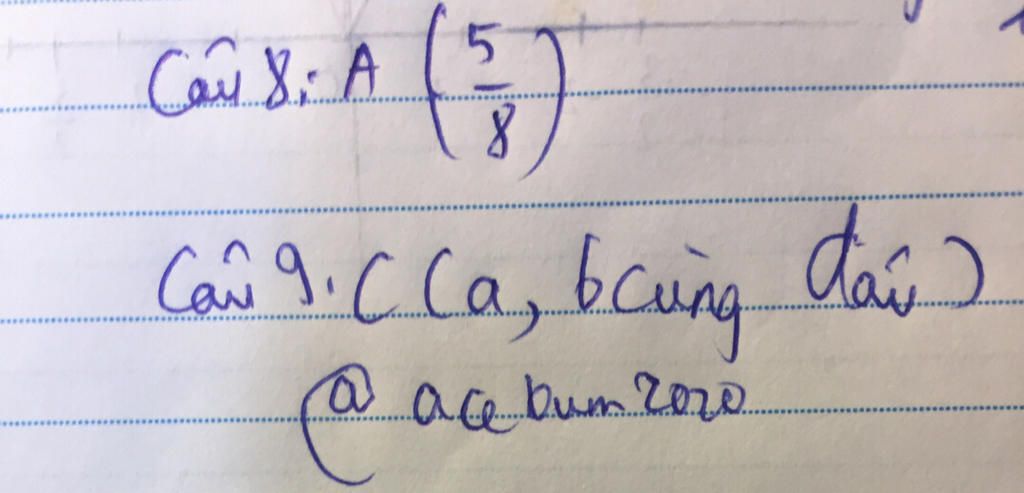 Câu 8: A (5/8)
Câu 9. C (a, b cùng dấu)
@ acebum2020